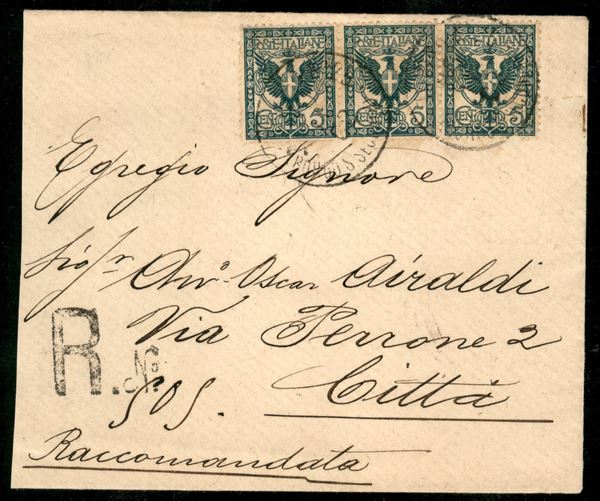 POSTE ITALIANE POSTE ITALIANE POSTE ITALIANE
CENTESIMI 5 CENTESIMI 5 CENTESIMI 5
Egregio Signore
Sig.r Avv.o Oscar Airaldi
Via Perrone 2
R. No.
505.
Città
Raccomandata